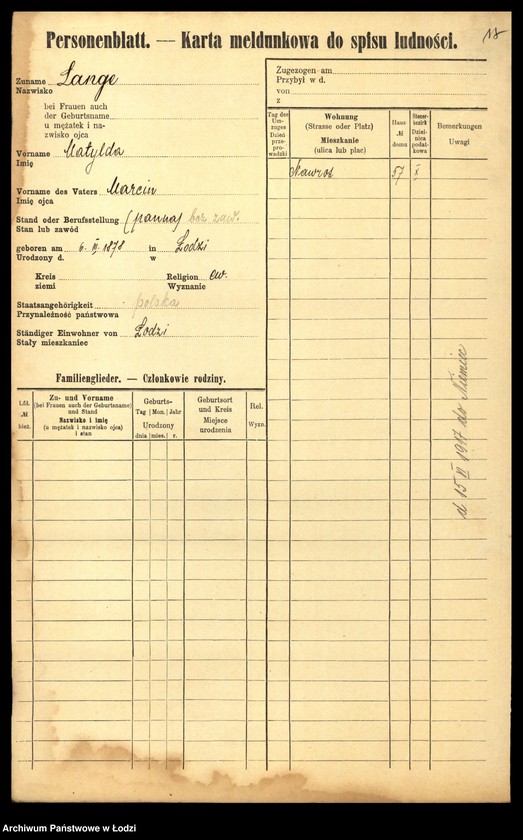 18
Personenblatt. — Karta meldunkowa do spisu ludności.
Zuname Lange
Nazwisko
bei Frauen auch
der Geburtsname
u mężatek i na-
zwisko ojca
Vorname Matylda
Imię
Vorname des Vaters Marcin
Imię ojca
Stand oder Berufsstellung (panna) bez zaw.
Stan lub zawód
geboren am 6. III. 1878 in Łodzi
Urodzony d. w
Kreis Religion ew.
ziemi Wyznanie
Staatsangehörigkeit polska
Przynależność państwowa
Ständiger Einwohner von Łodzi
Stały mieszkaniec
Familienglieder. — Członkowie rodziny.
Lfd. № bież.
Zu- und Vorname
(bei Frauen auch der Geburtsname)
und Stand
Nazwisko i imię
(u mężatek i nazwisko ojca)
i stan
Geburts-
Tag Mon. Jahr
Urodzony
dnia mies. r.
Geburtsort
und Kreis
Miejsce
urodzenia
Rel.
Wyzn.
Zugezogen am
Przybył w d.
von
z
Tag des
Um-
zuges
Dzień
prze-
pro-
wadzki
Wohnung
(Strasse oder Platz)
Mieszkanie
(ulica lub plac)
Haus
№
domu
Steuer-
bezirk
Dziel-
nica
podat-
kowa
Bemerkungen
Uwagi
Nawrot 57 X
d 15 VI 1917 do Niemiec
Archiwum Państwowe w Łodzi